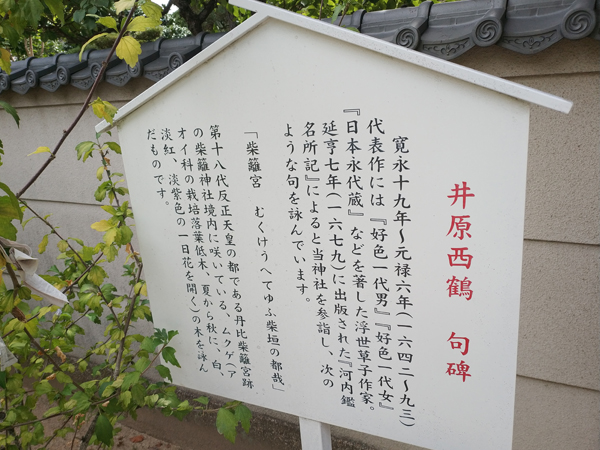 井原西鶴　句碑
寛永十九年～元禄六年(一六四二～九三)
代表作には『好色一代男』『好色一代女』
『日本永代蔵』などを著した浮世草子作家。
延亨七年(一六七九)に出版された『河内鑑
名所記』によると当神社を参詣し、次の
ような句を詠んでいます。
「柴籬宮　むくけうへてゆふ柴垣の都哉」
第十八代反正天皇の都である丹比柴籬宮跡
の柴籬神社境内に咲いている、ムクゲ(ア
オイ科の栽培落葉低木、夏から秋に、白、
淡紅、淡紫色の一日花を開く)の木を詠ん
だものです。